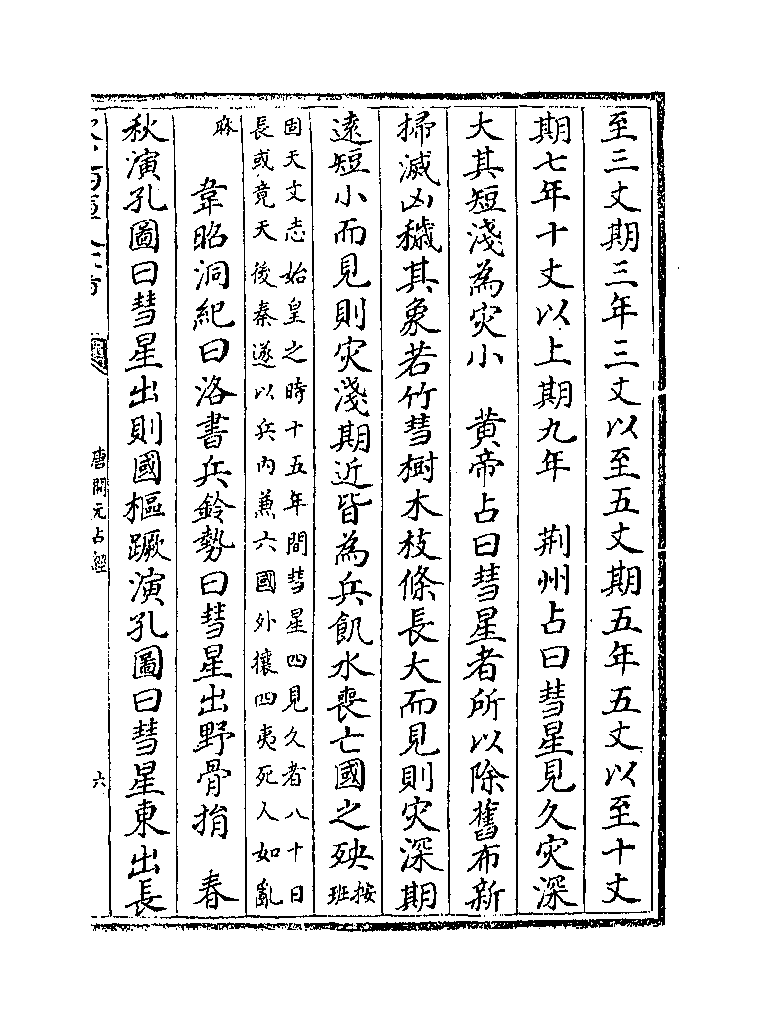 至三丈期三年三丈以至五丈期五年五丈以至十丈
期七年十丈以上期九年　荆州占曰彗星見久灾深
大其短淺為灾小　黄帝占曰彗星者所以除舊布新
掃滅凶穢其象若竹彗樹木枝條長大而見則灾深期
遠短小而見則灾淺期近皆為兵飢水喪亡國之殃按班
固天文志始皇之時十五年間彗星四見久者八十日
長或竟天後秦遂以兵内兼六國外攘四夷死人如亂
麻
韋昭洞紀曰洛書兵鈐勢曰彗星出野骨捐　春
秋演孔圖曰彗星出則國樞蹶演孔圖曰彗星東出長
唐開元占經
六